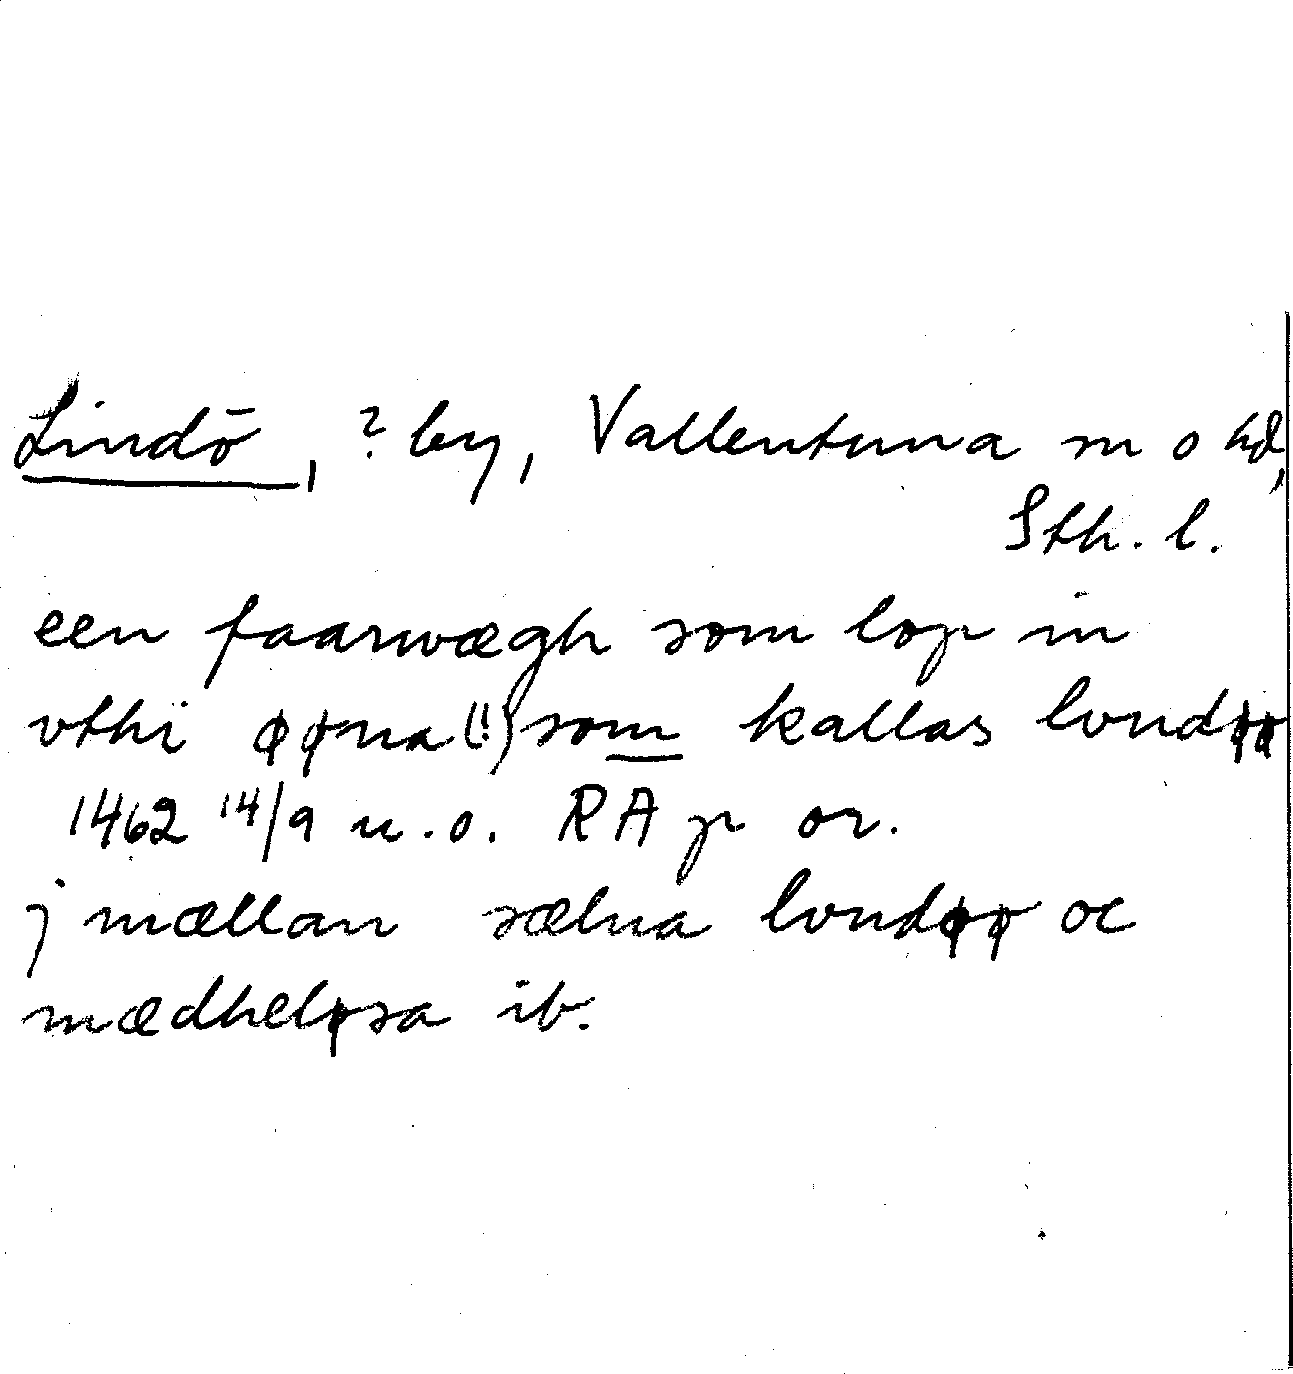 Lindö, ? by, Vallentuna sn o hd,
Sth. l.
een faarwægh som lop in
vthi øøna (!) som kallas lvndøø
1462 14/9 u.o. RA p or.
j mællan sælna lvndøø oc
mædheløsa ib.